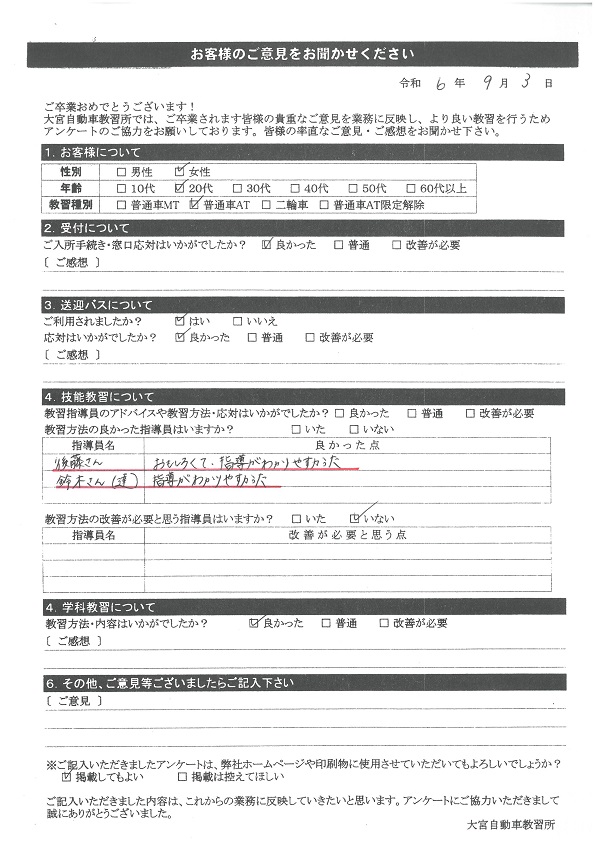 お客様のご意見をお聞かせください
令和 6 年 9 月 3 日
ご卒業おめでとうございます！
大宮自動車教習所では、ご卒業されます皆様の貴重なご意見を業務に反映し、より良い教習を行うため
アンケートのご協力をお願いしております。皆様の率直なご意見・ご感想をお聞かせ下さい。
1. お客様について
性別 □ 男性 ☑ 女性
年齢 □ 10代 ☑ 20代 □ 30代 □ 40代 □ 50代 □ 60代以上
教習種別 □ 普通車MT ☑ 普通車AT □ 二輪車 □ 普通車AT限定解除
2. 受付について
ご入所手続き・窓口応対はいかがでしたか？ ☑ 良かった □ 普通 □ 改善が必要
〔 ご感想 〕
3. 送迎バスについて
ご利用されましたか？ ☑ はい □ いいえ
応対はいかがでしたか？ ☑ 良かった □ 普通 □ 改善が必要
〔 ご感想 〕
4. 技能教習について
教習指導員のアドバイスや教習方法・応対はいかがでしたか？ □ 良かった □ 普通 □ 改善が必要
教習方法の良かった指導員はいますか？ □ いた □ いない
指導員名 良かった点
後藤さん おもしろくて、指導がわかりやすかった
鈴木さん（達） 指導がわかりやすかった
教習方法の改善が必要と思う指導員はいますか？ □ いた ☑ いない
指導員名 改善が必要と思う点
4. 学科教習について
教習方法・内容はいかがでしたか？ ☑ 良かった □ 普通 □ 改善が必要
〔 ご感想 〕
6. その他、ご意見等ございましたらご記入下さい
〔 ご意見 〕
※ご記入いただきましたアンケートは、弊社ホームページや印刷物に使用させていただいてもよろしいでしょうか？
☑ 掲載してもよい □ 掲載は控えてほしい
ご記入いただきました内容は、これからの業務に反映していきたいと思います。アンケートにご協力いただきまして
誠にありがとうございました。
大宮自動車教習所